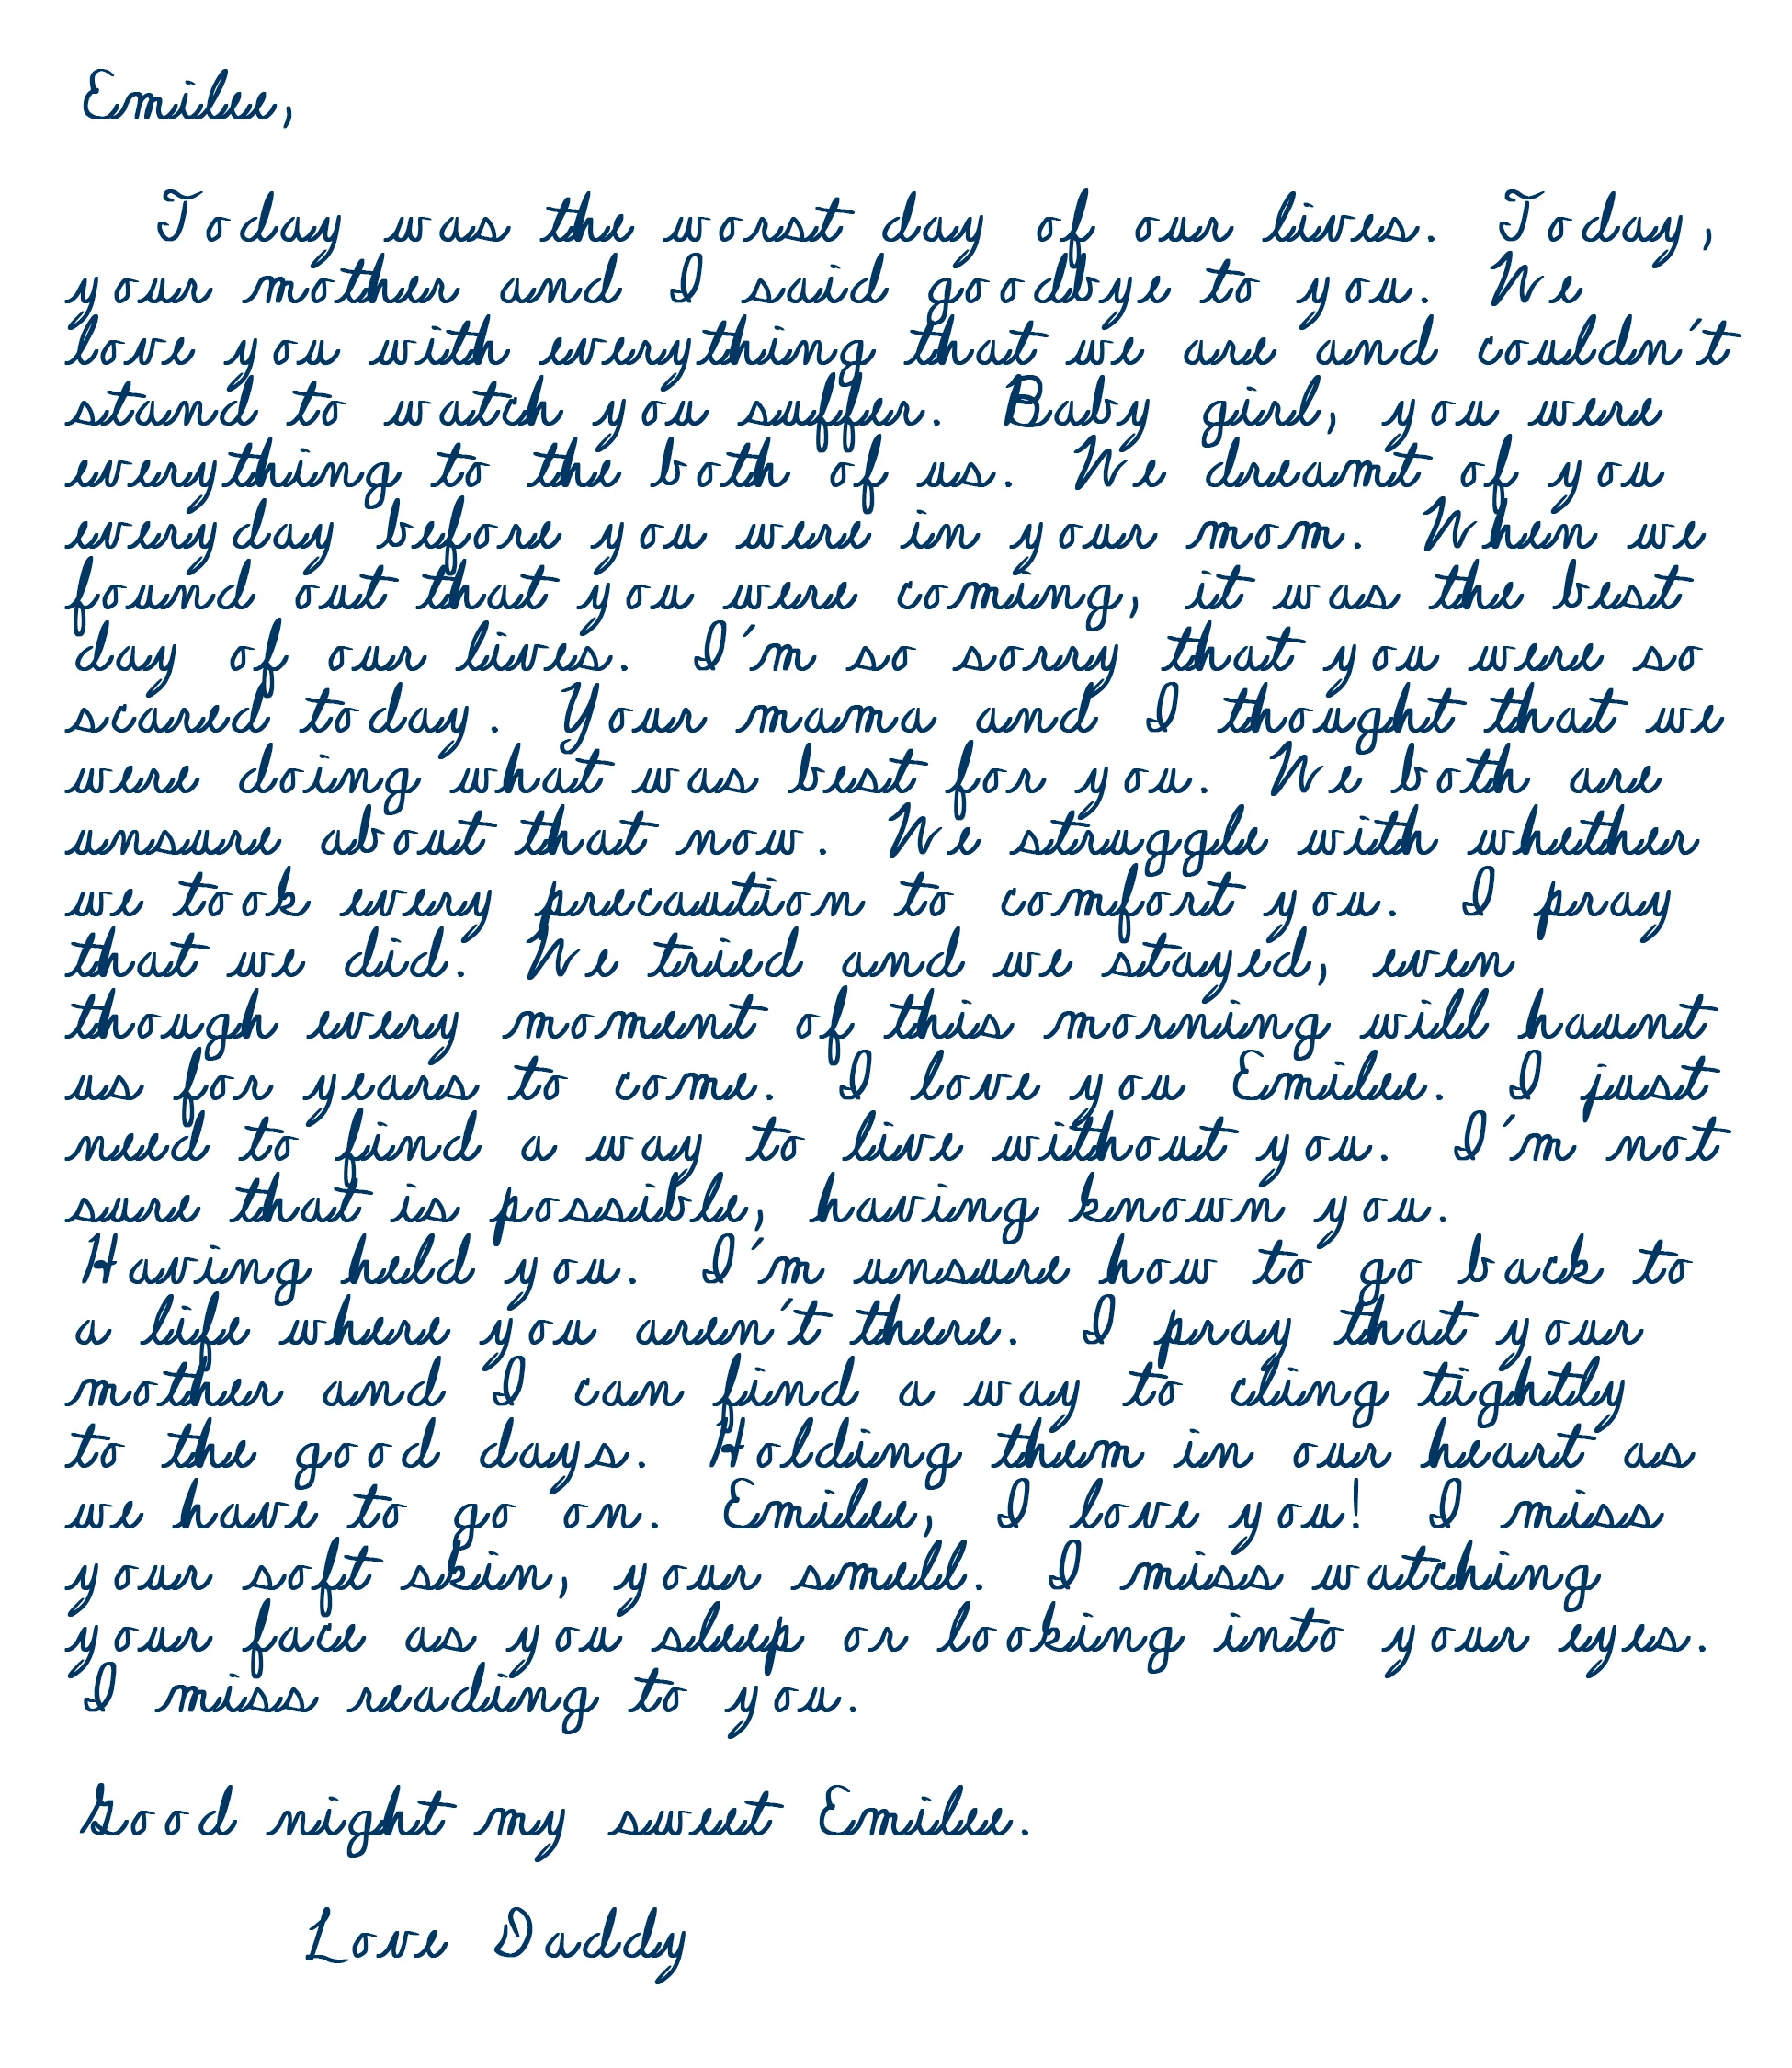 Emilee,
Today was the worst day of our lives. Today,
your mother and I said goodbye to you. We
love you with everything that we are and couldn't
stand to watch you suffer. Baby girl, you were
everything to the both of us. We dreamt of you
everyday before you were in your mom. When we
found out that you were coming, it was the best
day of our lives. I'm so sorry that you were so
scared today. Your mama and I thought that we
were doing what was best for you. We both are
unsure about that now. We struggle with whether
we took every precaution to comfort you. I pray
that we did. We tried and we stayed, even
though every moment of this morning will haunt
us for years to come. I love you Emilee. I just
need to find a way to live without you. I'm not
sure that is possible, having known you.
Having held you. I'm unsure how to go back to
a life where you aren't there. I pray that your
mother and I can find a way to cling tightly
to the good days. Holding them in our heart as
we have to go on. Emilee, I love you! I miss
your soft skin, your smell. I miss watching
your face as you sleep or looking into your eyes.
I miss reading to you.
Good night my sweet Emilee.
Love Daddy